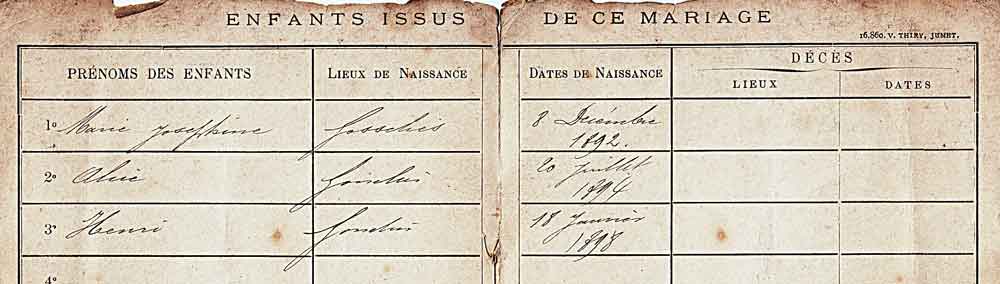 ENFANTS ISSUS DE CE MARIAGE
16.860. V. THIRY, JUMET.
PRÉNOMS DES ENFANTS LIEUX DE NAISSANCE DATES DE NAISSANCE DÉCÈS
LIEUX DATES
1º Marie Josephine Gosselies 8 Décembre
1892.
2º Alice Gosselies 20 Juillet
1894
3º Henri Gosselies 18 Janvier
1898
4º